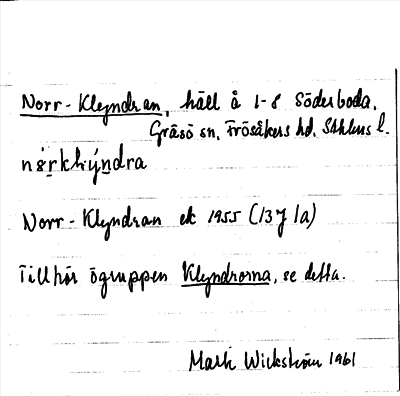 Norr-Klyndran, häll å 1-8 Söderboda.
Gräsö sn, Frösåkers hd, Sthlms l.
Norr-Klyndran ek 1955 (13J 1a)
Tillhör ögruppen Klyndrorna, se detta.
Mark Wickström 1961